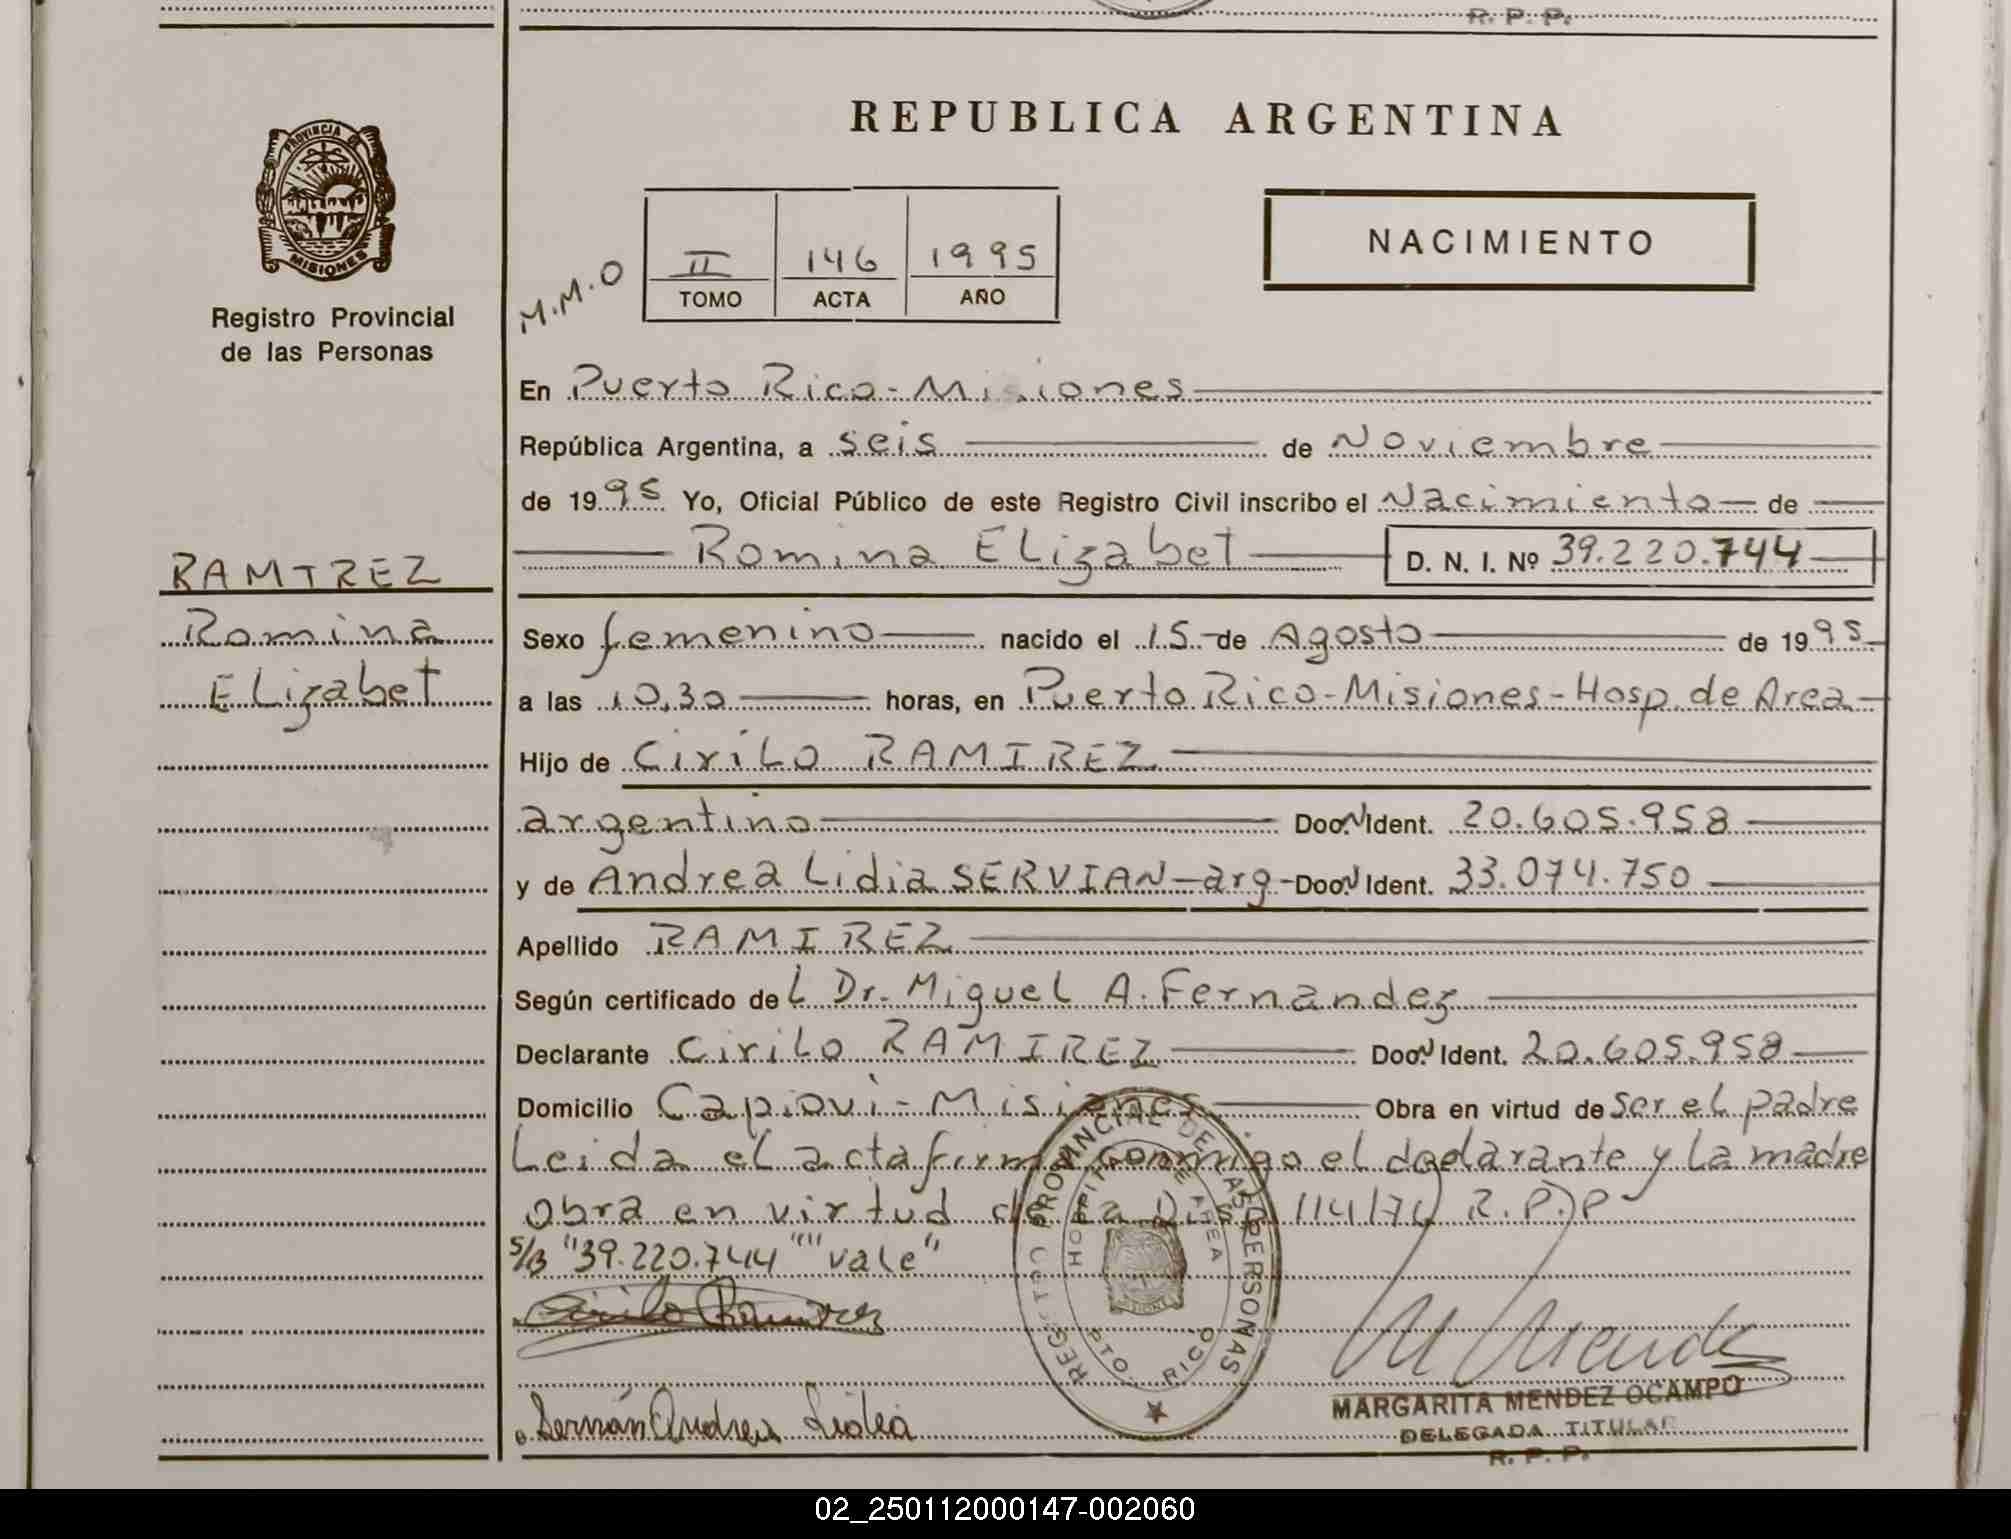 R. P. P.
REPUBLICA ARGENTINA
PROVINCIA DE
MISIONES
Registro Provincial
de las Personas
M.M.O
II 146 1995
TOMO ACTA AÑO
NACIMIENTO
En Puerto Rico - Misiones
República Argentina, a seis de Noviembre
de 1995 Yo, Oficial Público de este Registro Civil inscribo el Nacimiento de
Romina ELizabet D. N. I. Nº 39.220.744
RAMIREZ
Romina
ELizabet
Sexo femenino nacido el 15 de Agosto de 1995
a las 10,30 horas, en Puerto Rico - Misiones - Hosp. de Area
Hijo de CiriLo RAMIREZ
argentino Doc. N Ident. 20.605.958
y de Andrea Lidia SERVIAN - arg - Doc. N Ident. 33.074.750
Apellido RAMIREZ
Según certificado deL Dr. MigueL A. Fernandez
Declarante CiriLo RAMIREZ Doc. N Ident. 20.605.958
Domicilio Capioví - Misiones Obra en virtud de Ser eL padre
Leida eL acta firma conmigo el declarante y La madre
obra en virtud de La Disp. 114/74 R.P.P
S/B "39.220.744" "vale"
Cirilo Ramirez
Andrea Lidia
REGISTRO PROVINCIAL DE LAS PERSONAS
HOSPITAL DE AREA
PTO. RICO
MARGARITA MENDEZ OCAMPO
DELEGADA TITULAR
R. P. P.
02_250112000147-002060